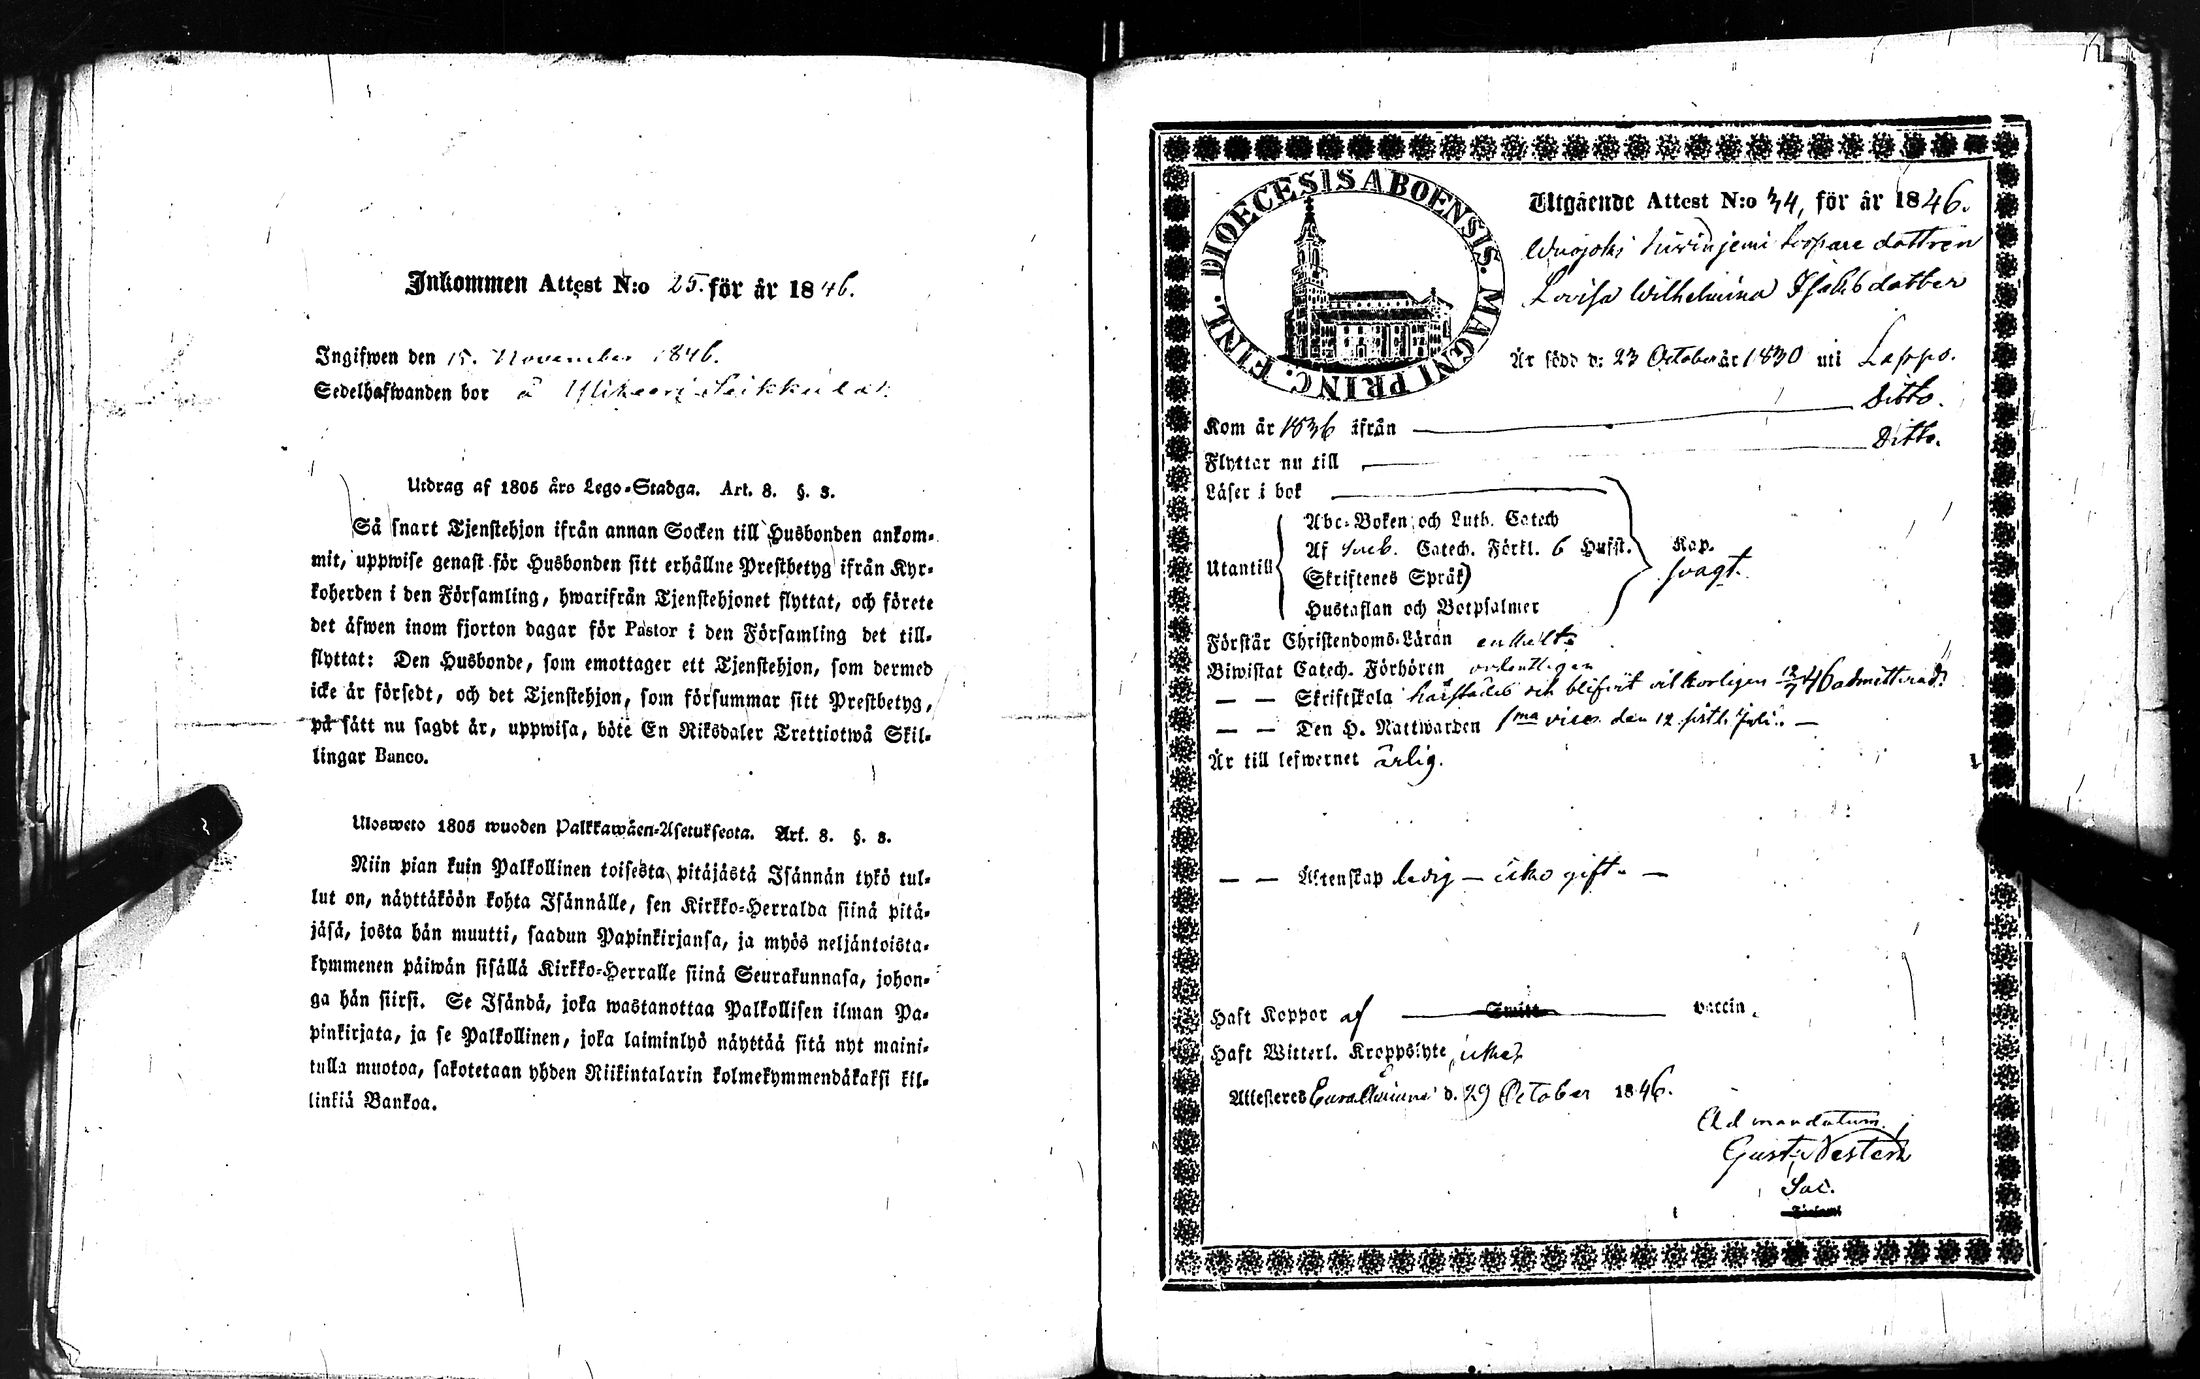 Inkommen Attest N:o 25. för år 1846.
Ingifwen den 15. November 1846.
Sedelhafwanden bor å
Utdrag af 1805 års Lego-Stadga. Art. 8. §. 3.
Så snart Tjenstehjon ifrån annan Socken till Husbonden ankom-
mit, uppwise genast för Husbonden sitt erhållne Prestbetyg ifrån Kyr-
koherden i den Församling, hwarifrån Tjenstehjonet flyttat, och förete
det äfwen inom fjorton dagar för Pastor i den Församling det till-
flyttat: Den Husbonde, som emottager ett Tjenstehjon, som dermed
icke är försedt, och det Tjenstehjon, som försummar sitt Prestbetyg,
på sätt nu sagdt är, uppwisa, böte En Riksdaler Trettiotwå Skil-
lingar Banco.
Ulosweto 1805 wuoden Palkkawäen-Asetuksesta. Art. 8. §. 3.
Niin pian kuin Palkollinen toisesta pitäjästä Isännän tykö tul-
lut on, näyttäköön kohta Isännälle, sen Kirkko-Herralda siinä pitä-
jäsä, josta hän muutti, saadun Papinkirjansa, ja myös neljäntoista-
kymmenen päiwän sisällä Kirkko-Herralle siinä Seurakunnasa, johon-
ga hän siirsi. Se Isändä, joka wastanottaa Palkollisen ilman Pa-
pinkirjata, ja se Palkollinen, joka laiminlyö näyttää sitä nyt maini-
tulla muotoa, sakotetaan yhden Riikintalarin kolmekymmendäkaksi kil-
linkiä Bankoa.
DIOECESIS ABOENSIS. MAGNI PRINC. FINL.
Utgående Attest N:o 34, för år 1846.
dottren
Lovisa Wilhelmina Isaksdotter
Är född d: 23 October år 1830 uti Lappo.
Kom år 1836 ifrån Ditto.
Flyttar nu till Ditto.
Läser i bok
Utantill
Abc-Boken och Luth. Catech
Af Sveb. Catech. Förkl. 6 Hufst. Kap.
(Skriftenes Språk) svagt.
Hustaflan och Botpsalmer
Förstår Christendoms-Läran enkelt
Biwistat Catech. Förhören ordentligen
— — Skriftskola härstädes och blifvit vilkorligen 12/7 46 admitterad.
— — Den H. Nattwarden 1ma vice den 12 sistl. Juli. —
Är till lefwernet ärlig.
— — Äktenskap ledig — icke gift. —
Haft Koppor af vaccin.
Haft Witterl. Kroppslyte icke.
Attesteres Eura d. 29 October 1846.
Ad mandatum
Gust.
Sac.